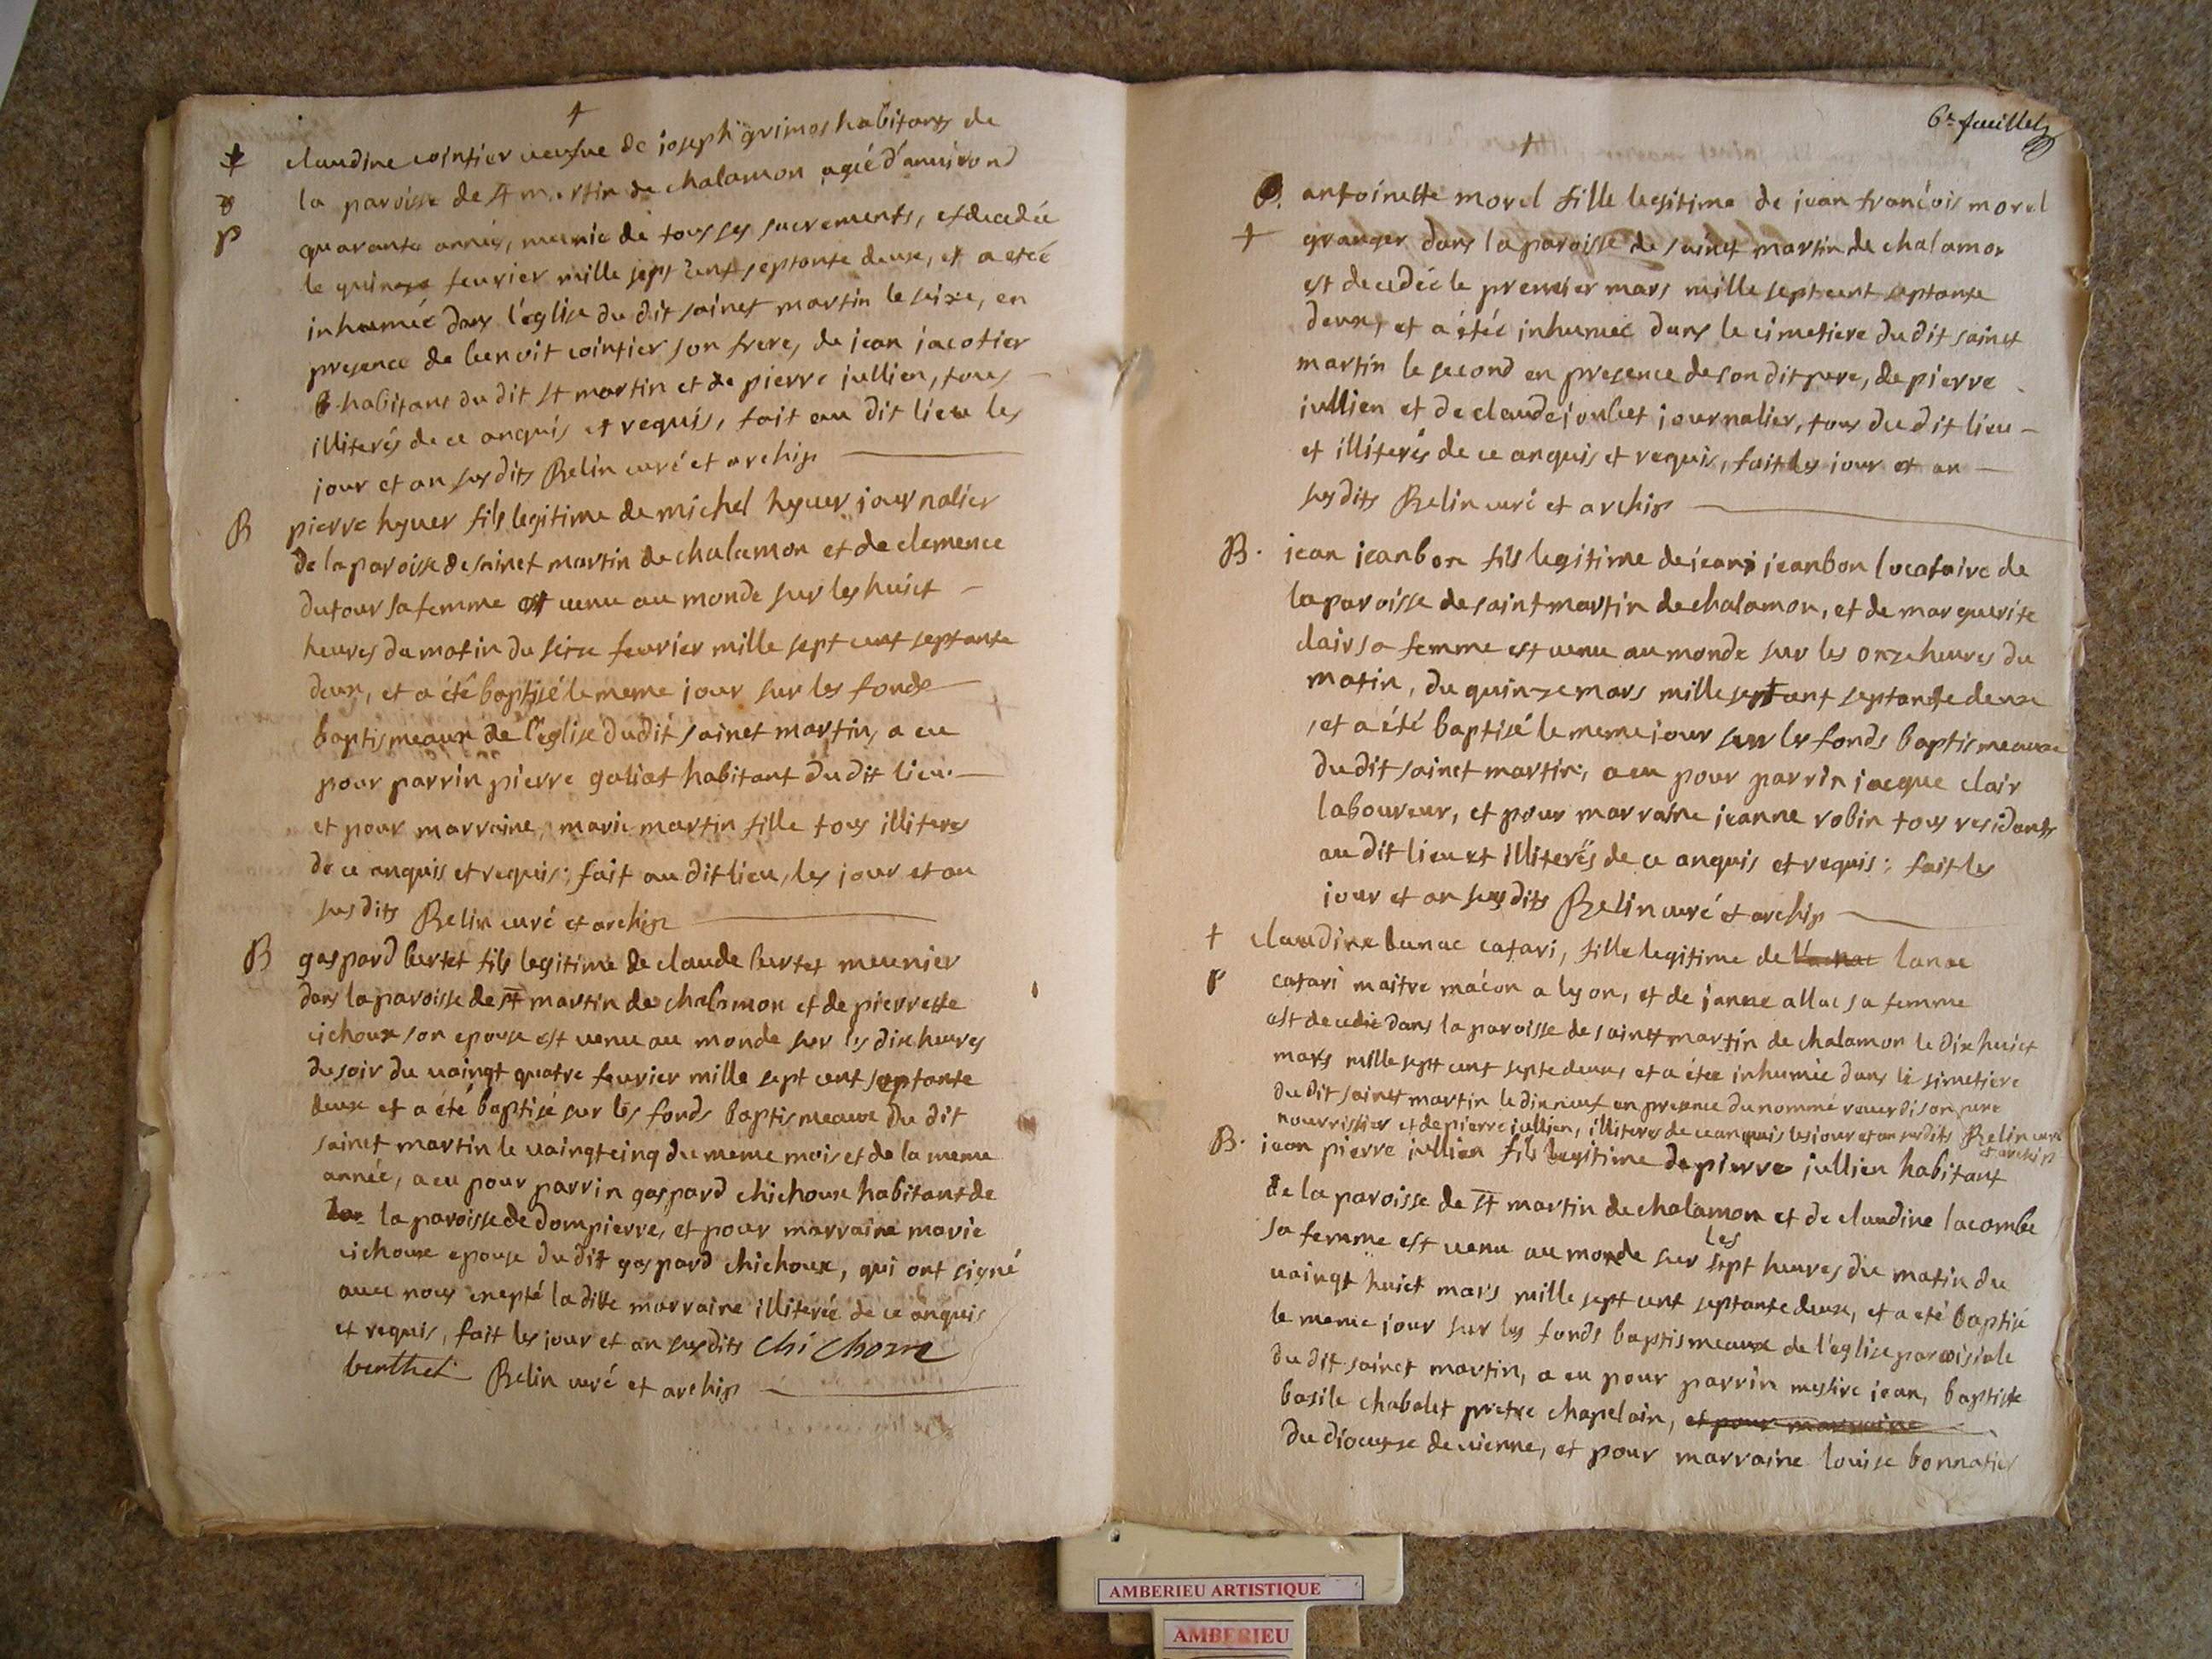 claudine cointier veufve de joseph grimos habitants de
la paroisse de st martin de chalamon agée d'anuirond
quarante années, munie de tous ses sacrements, est decedée
le quinze feurier mille sept cent septante deux, et a etée
inhumée dans l'église du dit sainct martin le seize, en
presence de benoit cointier son frere, de jean jacotier
habitant du dit st martin et de pierre jullien, tous
illiterés de ce anquis et requis, fait au dit lieu les
jour et an susdits Belin curé et archip
B pierre hyuer fils legitime de michel hyuer journalier
de la paroisse de sainct martin de chalamon et de clemence
dutour sa femme est uenu au monde sur les huict
heures du matin du seize feurier mille sept cent septante
deux, et a été baptisé le meme jour sur les fonds
baptismeaux de l'église du dit sainct martin, a eu
pour parrin pierre galiat habitant du dit lieu
et pour marraine, marie martin fille tous illiteres
de ce anquis et requis; fait au dit lieu, les jour et an
susdits Belin curé et archip
B gaspard burtet fils legitime de claude burtet meunier
dans la paroisse de st martin de chalamon et de pierrette
cichoux son epouse est uenu au monde sur les dix heures
du soir du uaingt quatre feurier mille sept cent septante
deux et a été baptisé sur les fonds baptismeaux du dit
sainct martin le uaingt cinq du meme mois et de la meme
année, a eu pour parrin gaspard chichoux habitant de
la paroisse de dompierre, et pour marraine marie
cichoux epouse du dit gaspard chichoux, qui ont signé
auec nous exepté la ditte marraine illiterée de ce anquis
et requis, fait les jour et an susdits chichoux
berthet Belin curé et archip
6e feuillet
antoinette morel fille legitime de jean francois morel
granger dans la paroisse de sainct martin de chalamon
est decedée le premier mars mille sept cent septante
deux, et a étée inhumée dans le cimetiere du dit sainct
martin le second en presence de son dit pere, de pierre
jullien et de claude joulet journalier, tous du dit lieu
et illiterés de ce anquis et requis, fait les jour et an
susdits Belin curé et archip
B. jean jeanbon fils legitime de jean jeanbon locataire de
la paroisse de saint martin de chalamon, et de marguerite
clair sa femme est uenu au monde sur les onze heures du
matin, du quinze mars mille sept cent septante deux
, et a été baptisé le meme jour sur les fonds baptismeaux
du dit sainct martin, a eu pour parrin jacque clair
laboureur, et pour marraine jeanne robin tous residants
au dit lieu et illiterés de ce anquis et requis; fait les
jour et an susdits Belin curé et archip
claudine lunac catari, fille legitime de lanac
P catari maitre macon a lyon, et de janne allac sa femme
est decedée dans la paroisse de sainct martin de chalamon le dix huict
mars mille sept cent septe deux, et a étée inhumée dans le simetiere
du dit sainct martin le dix neuf en presence du nommé reuerdi son pere
nourrissier et de pierre jullien, illiteres de ce anquis les jour et an susdits Belin curé
et archip
B. jean pierre jullien fils legitime de pierre jullien habitant
de la paroisse de st martin de chalamon et de claudine lacombe
sa femme est uenu au monde sur les sept heures du matin du
uaingt huict mars mille sept cent septante deux, et a eté baptisé
le meme jour sur les fonds baptismeaux de l'eglise paroisiale
du dit sainct martin, a eu pour parrin messire jean, baptiste
basile chabalet pretre chapelain, et pour marraine
du diocesse de uienne, et pour marraine louise bonnatier
AMBERIEU ARTISTIQUE
AMBERIEU